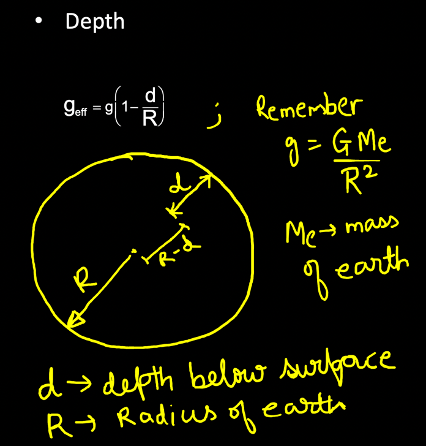 • Depth
g_eff = g(1 - d/R) ; Remember
g = GMe/R²
Me → mass
of earth
d
R-d
R
d → depth below surface
R → Radius of earth